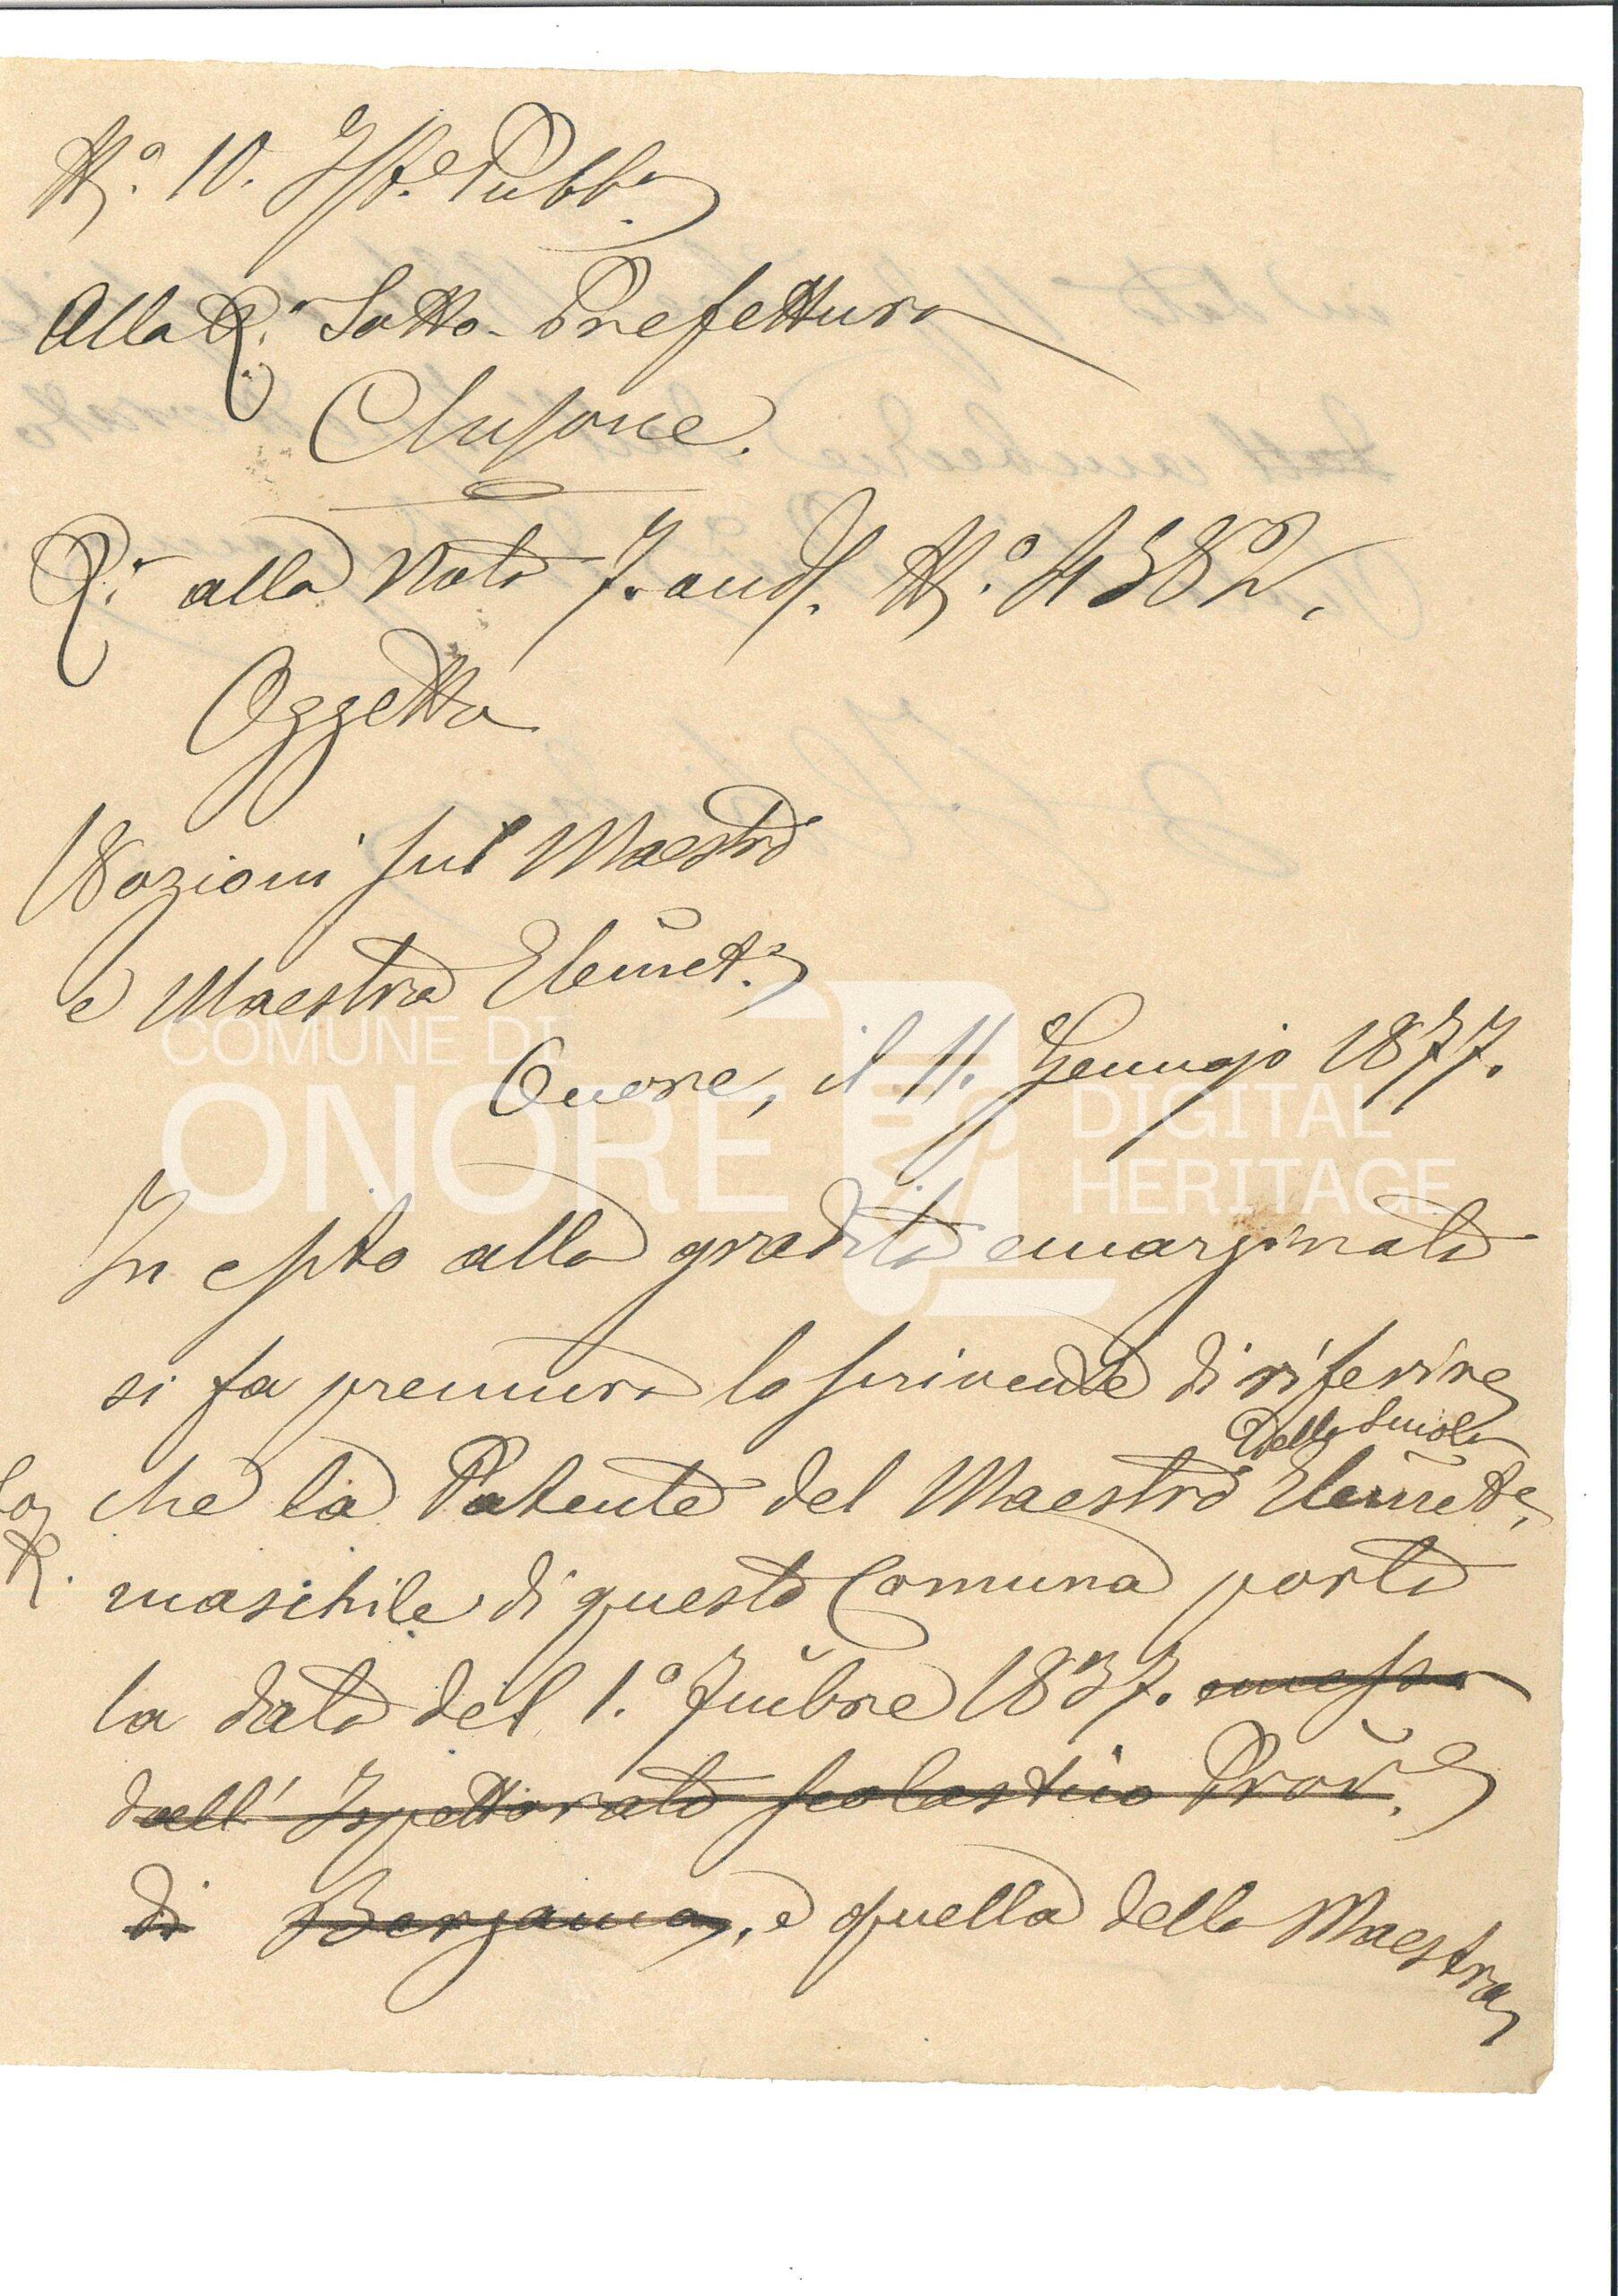 N.º 10. Ist.e Pubb.a
Alla R.a Sotto-Prefettura
Clusone.
R.a alla Nota 7. and.e N.º 4382.
Oggetto
Nozioni sul Maestro
e Maestra Elemet.e
Onore, il 11. Gennajo 1877.
COMUNE DI
ONORE
DIGITAL
HERITAGE
In esito alla gradita emarginata
si fa premura lo scrivente di riferire
della Scuola
che la Patente del Maestro Elemete.
maschile di questo Comune porta
la data del 1.º 9mbre 1837. emessa
dall' Ispettorato Scolastico Prov.e
di Bergamo, e quella della Maestra